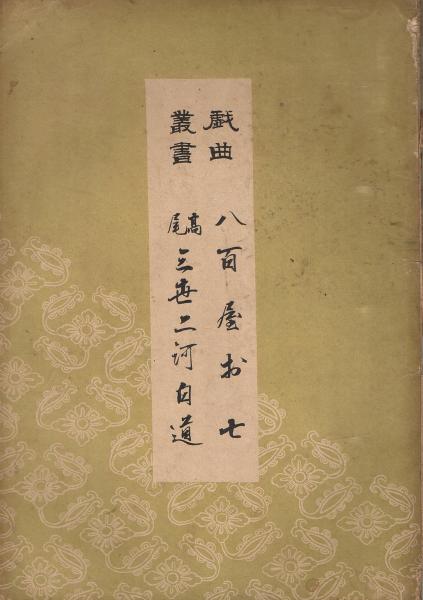 戯曲
叢書
八百屋お七
高尾
三世二河白道